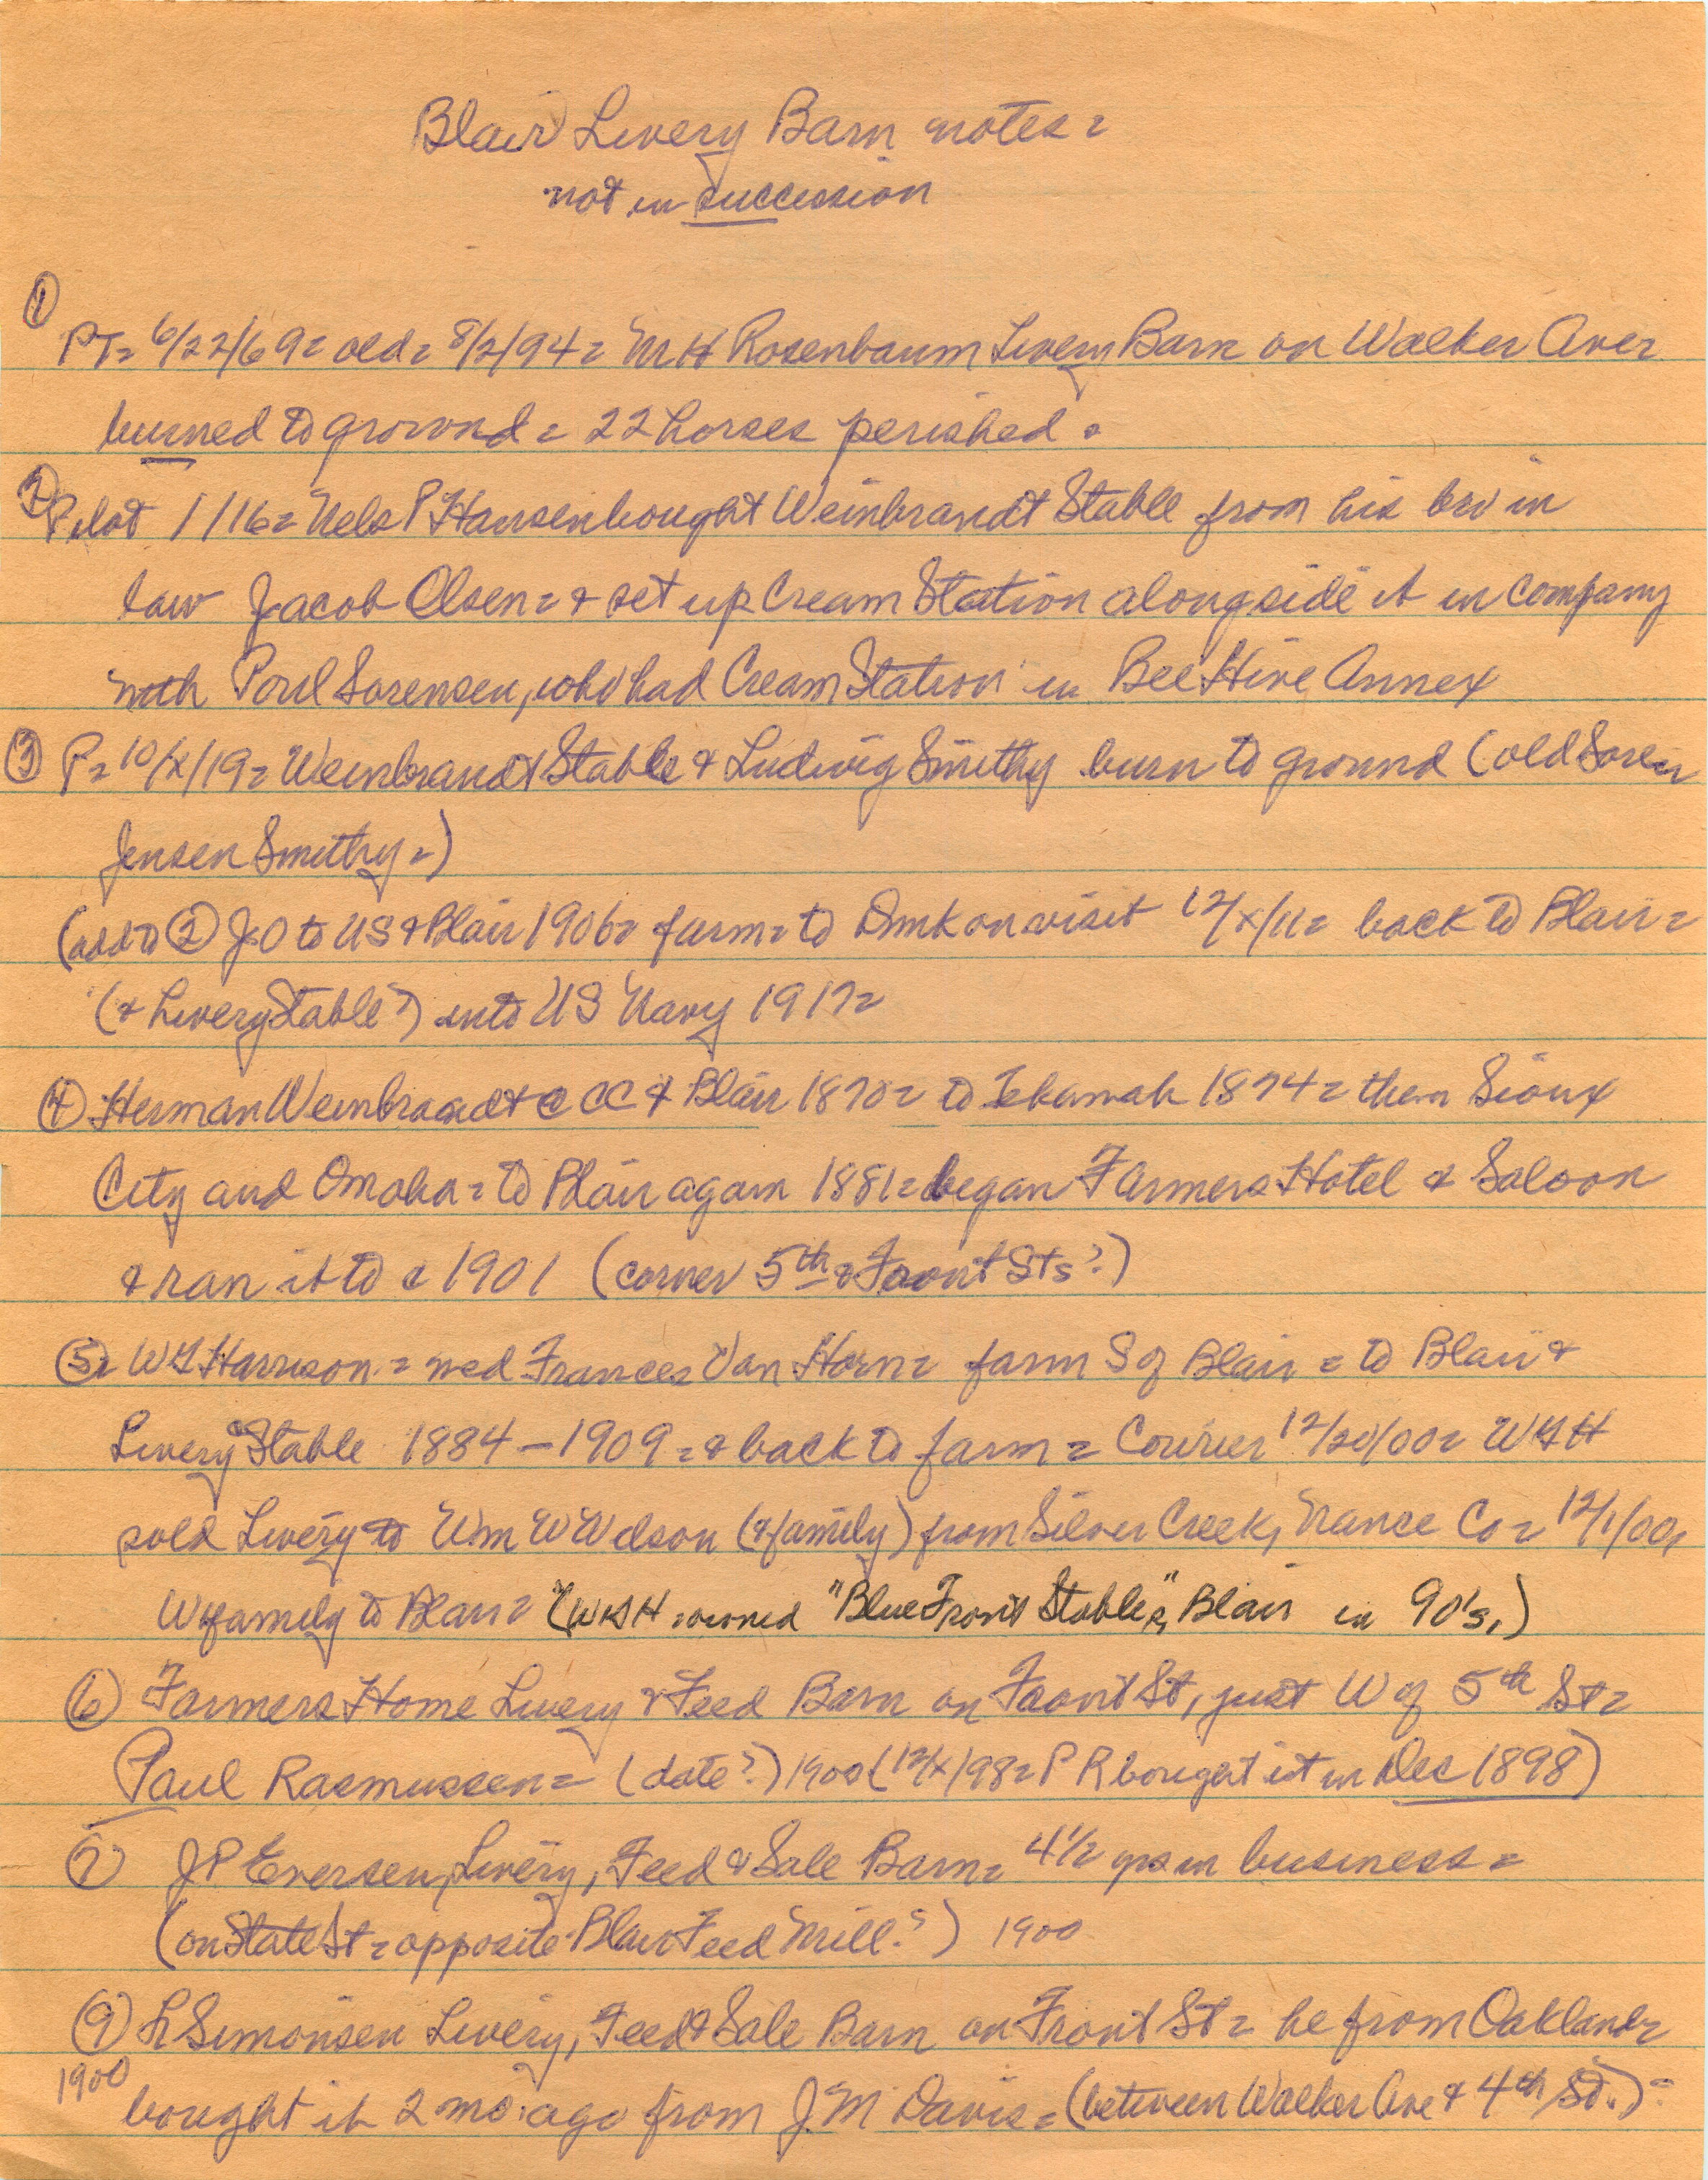 Blair Livery Barn notes =
not in succession
① PT= 6/22/69= old= 8/2/94= M H Rosenbaum Livery Barn on Walker Ave=
burned to ground = 22 horses perished =
② Pilot 1/16= Nels P Hansen bought Weinbrandt Stable from his bro in
law Jacob Olsen= & set up Cream Station alongside it in company
with Poul Sorensen, who had Cream Station in Bee Hive Annex
③ P= 10/x/19= Weinbrandt Stable & Ludwig Smithy burn to ground (old Soren
Jensen Smithy=)
(add to ② JO to US & Blair 1906= farm= to Dmk on visit 12/x/11= back to Blair=
(& Livery Stable?) into US Navy 1917=
④ Herman Weinbrandt CC & Blair 1870= to Tekamah 1874= then Sioux
City and Omaha= to Blair again 1881= began Farmers Hotel & Saloon
& ran it to c 1901 (corner 5th & Front Sts?)
⑤= W H Harrison= wed Frances Van Horn= farm S of Blair= to Blair &
Livery Stable 1884-1909= & back to farm= Courier 12/20/00= W H H
sold Livery to Wm W Wilson (& family) from Silver Creek, Nance Co= 12/1/00,
W & family to Blair= (W H H owned "Blue Front Stable", Blair in 90's,)
⑥ Farmers Home Livery & Feed Barn on Front St, just W of 5th St=
Paul Rasmussen= (date?) 1900 (12/x/98= P R bought it in Dec 1898)
⑦ J P Eversen, Livery, Feed & Sale Barn= 4½ yrs in business=
(on State St= opposite Blair Feed Mill?) 1900
⑨ L Simonsen Livery, Feed & Sale Barn on Front St= he from Oakland=
1900 bought it 2 mo. ago from J. M Davis= (between Walker Ave & 4th St.)=